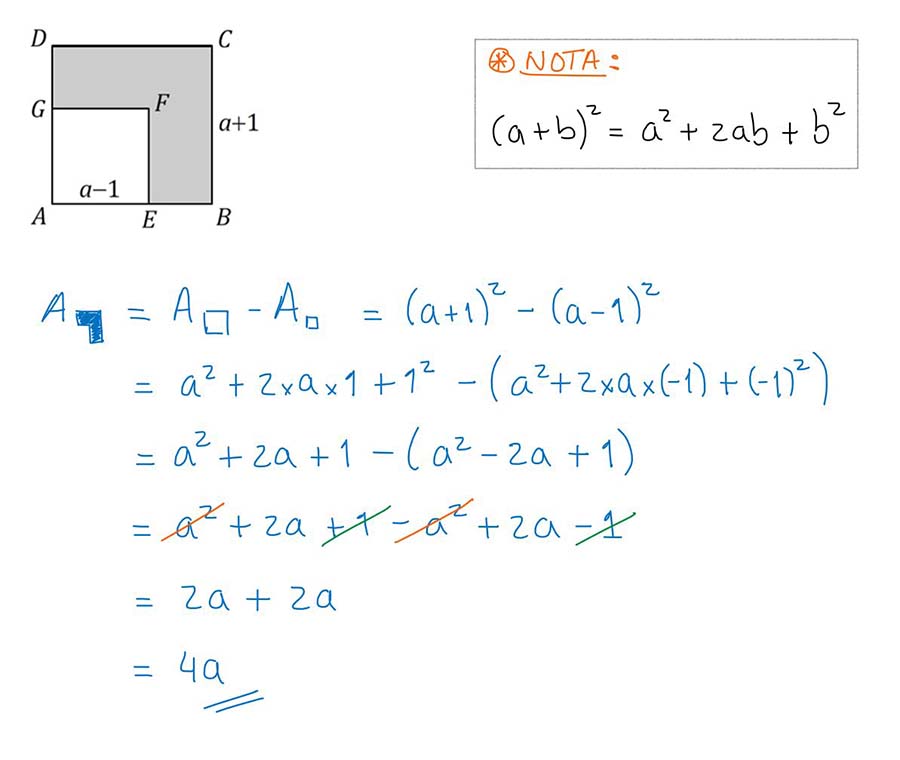 D C
G F
a+1
a−1
A E B
⊛ NOTA:
(a+b)² = a² + 2ab + b²
A = A□ - A□ = (a+1)² - (a-1)²
= a² + 2×a×1 + 1² - (a² + 2×a×(-1) + (-1)²)
= a² + 2a + 1 - (a² - 2a + 1)
= a² + 2a + 1 - a² + 2a - 1
= 2a + 2a
= 4a